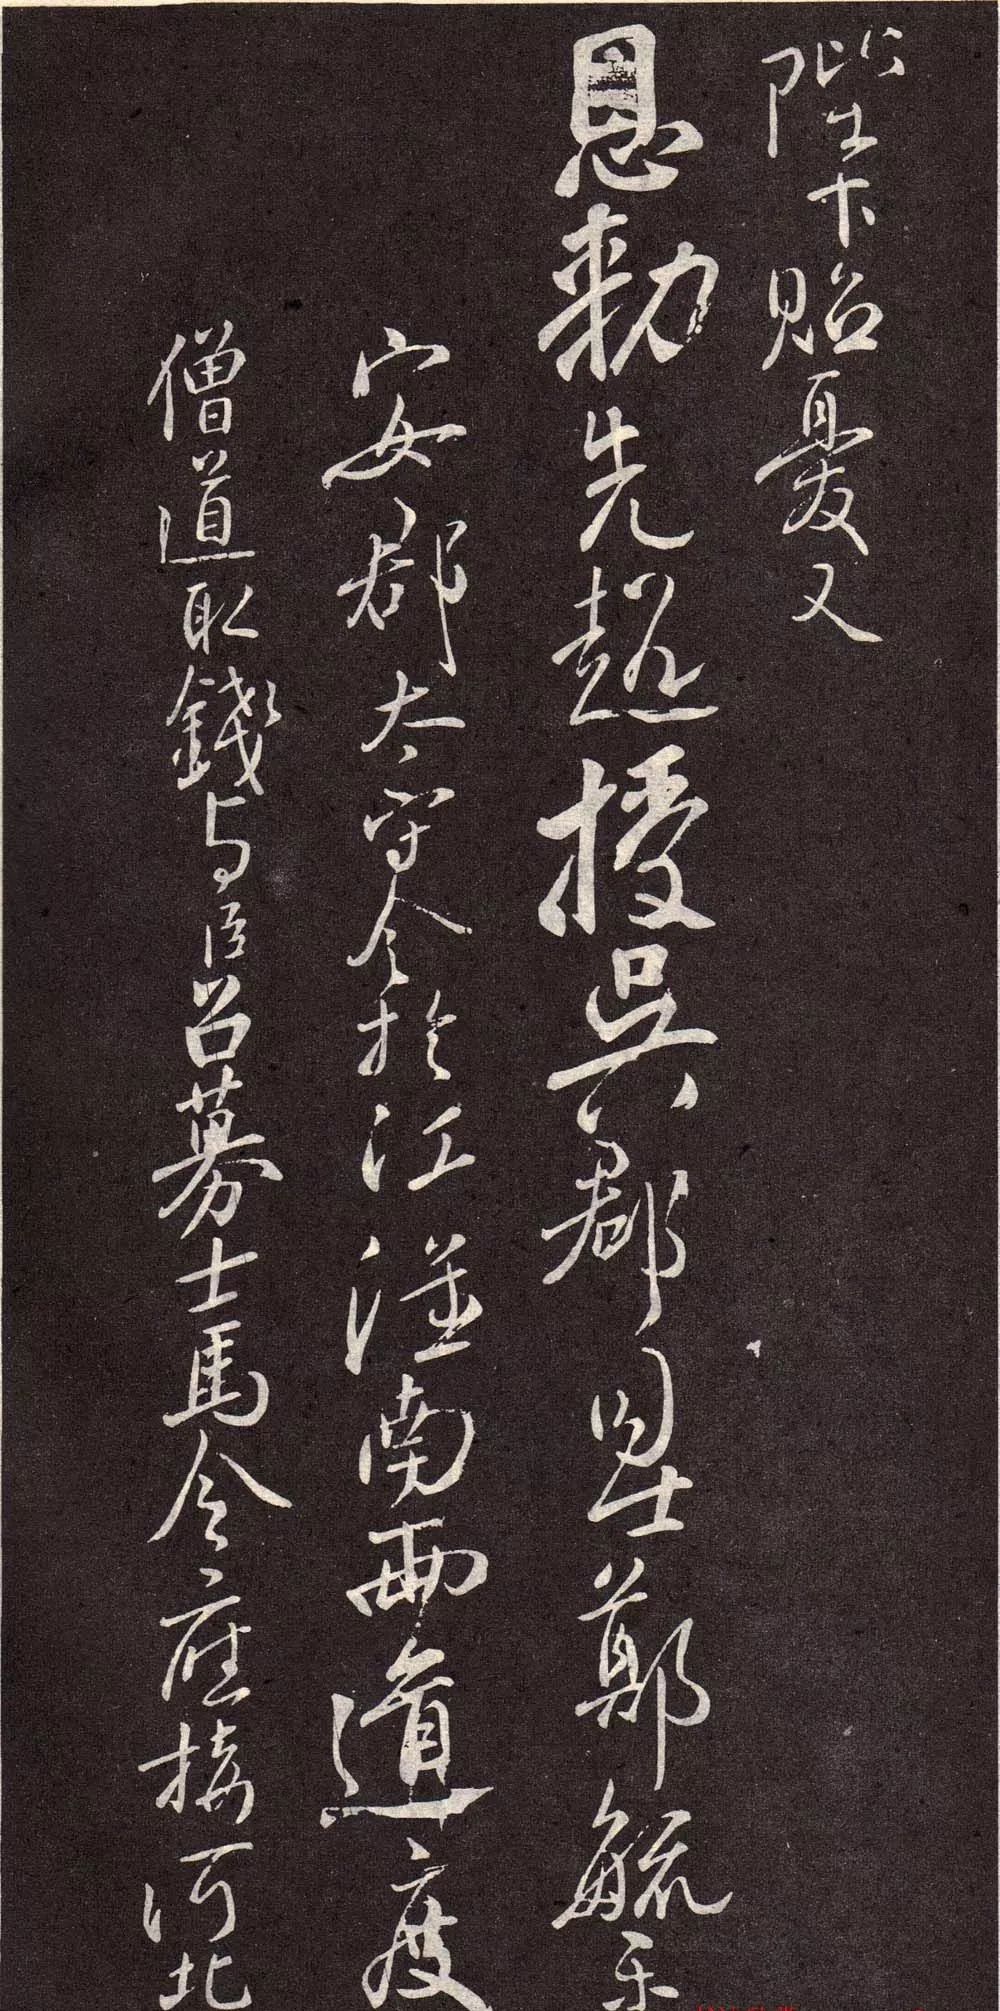 陛下貽憂又
恩勅先超授吳郡司士鄭毓樂
安郡太守令於江淮南兩道度
僧道取錢与臣召募士馬令應接河北